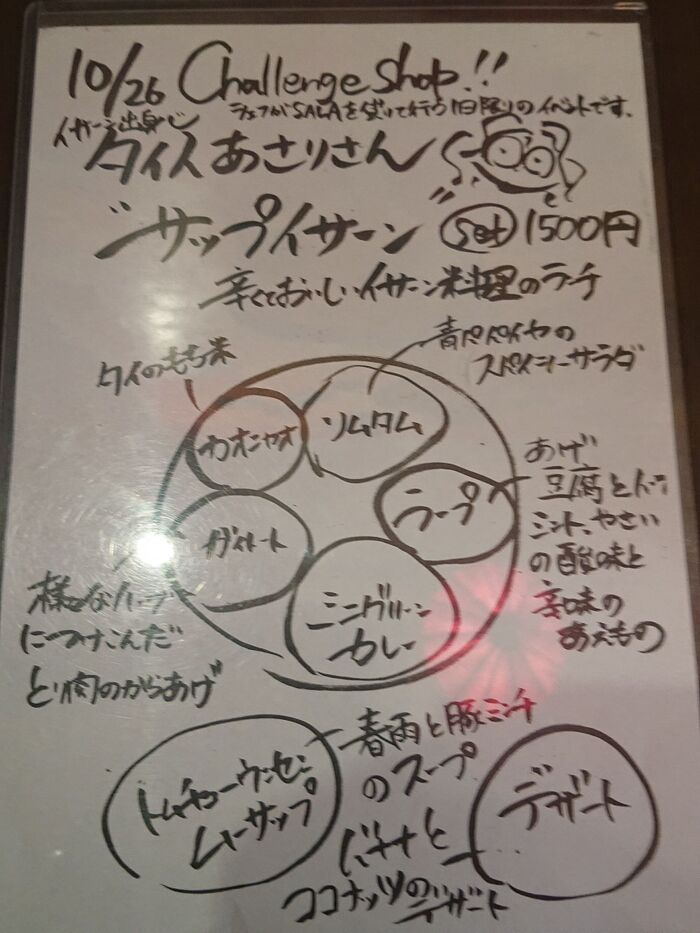 10/26 Challenge Shop!!
シェフがSALAを使って行う1日限りのイベントです。
イサーン出身
タイ人あさりさん
"サップイサーン" set 1500円
辛くておいしいイサーン料理のランチ
タイのもち米
青パパイヤの
スパイシーサラダ
カオニャオ
ソムタム
ラープ
あげ
豆腐と
ミント、やさい
の酸味と
辛味の
あえもの
ガイトート
ミニグリーン
カレー
様々なハーブ
につけこんだ
とり肉のからあげ
トムチューウンセン
ムーサップ
春雨と豚ミンチ
のスープ
デザート
バナナと
ココナッツのデザート